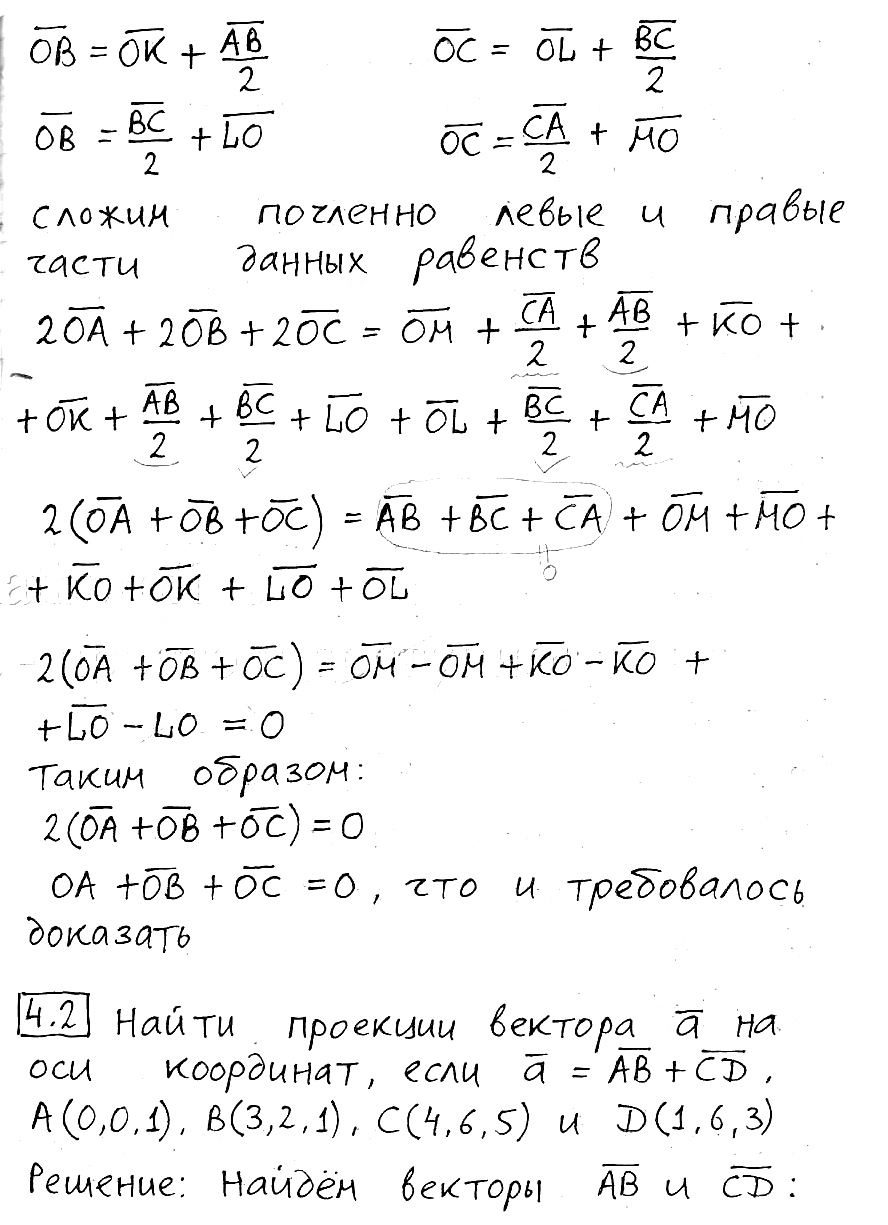 O̅B̅ = O̅K̅ + A̅B̅/2 O̅C̅ = O̅L̅ + B̅C̅/2
O̅B̅ = B̅C̅/2 + L̅O̅ O̅C̅ = C̅A̅/2 + M̅O̅
сложим почленно левые и правые
части данных равенств
2O̅A̅ + 2O̅B̅ + 2O̅C̅ = O̅M̅ + C̅A̅/2 + A̅B̅/2 + K̅O̅ +
+ O̅K̅ + A̅B̅/2 + B̅C̅/2 + L̅O̅ + O̅L̅ + B̅C̅/2 + C̅A̅/2 + M̅O̅
2(O̅A̅ + O̅B̅ + O̅C̅) = A̅B̅ + B̅C̅ + C̅A̅ + O̅M̅ + M̅O̅ +
0
+ K̅O̅ + O̅K̅ + L̅O̅ + O̅L̅
2(O̅A̅ + O̅B̅ + O̅C̅) = O̅M̅ - O̅M̅ + K̅O̅ - K̅O̅ +
+ L̅O̅ - LO = 0
Таким образом:
2(O̅A̅ + O̅B̅ + O̅C̅) = 0
OA + O̅B̅ + O̅C̅ = 0, что и требовалось
доказать
4.2 Найти проекции вектора a̅ на
оси координат, если a̅ = A̅B̅ + C̅D̅,
A(0,0,1), B(3,2,1), C(4,6,5) и D(1,6,3)
Решение: Найдём векторы A̅B̅ и C̅D̅: